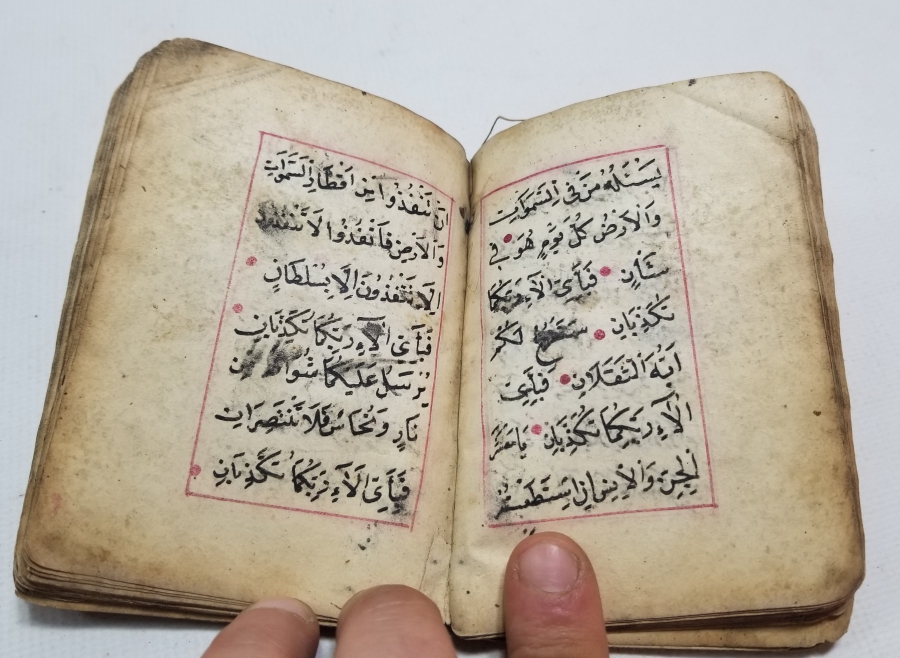 يَسْئَلُهُ مَنْ فِي السَّمٰوَاتِ
وَالْاَرْضِ كُلَّ يَوْمٍ هُوَ فِي
شَأْنٍ فَبِاَىِّ الْاۤءِ رَبِّكُمَا
تُكَذِّبَانِ سَنَفْرُغُ لَكُمْ
اَيُّهَ الثَّقَلَانِ فَبِاَىِّ
الْاۤءِ رَبِّكُمَا تُكَذِّبَانِ يَا مَعْشَرَ
الْجِنِّ وَالْاِنْسِ اِنِ اسْتَطَعْتُمْ
اَنْ تَنْفُذُوا مِنْ اَقْطَارِ السَّمٰوَاتِ
وَالْاَرْضِ فَانْفُذُوا لَا تَنْفُذُونَ
اِلَّا تَنْفُذُونَ اِلَّا بِسُلْطَانٍ
فَبِاَىِّ الْاۤءِ رَبِّكُمَا تُكَذِّبَانِ
يُرْسَلُ عَلَيْكُمَا شُوَاظٌ مِنْ
نَارٍ وَنُحَاسٌ فَلَا تَنْتَصِرَانِ
فَبِاَىِّ الْاۤءِ رَبِّكُمَا تُكَذِّبَانِ